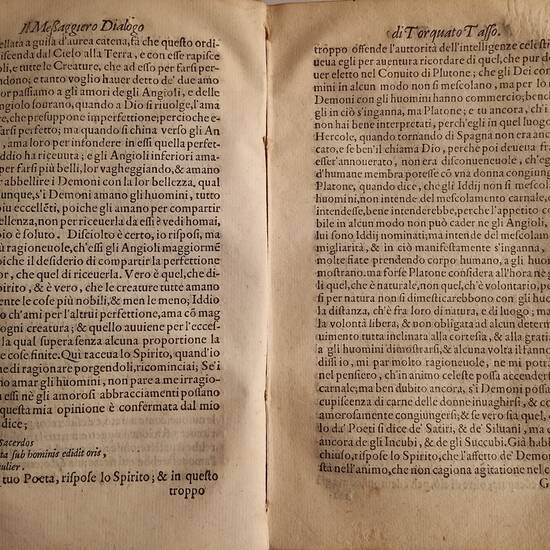 Il Meſſaggiero Dialogo
ellata a guiſa d'aurea catena, fà che queſto ordi-
iſcenda dal Cielo alla Terra, e con eſſe rapiſce
oli, e tutte le Creature, che ad eſſo per farſi per-
ndono; e tanto voglio hauer detto de' due amo
or paſſiamo a gli amori de gli Angioli, e delle
ngiolo ſourano, quando a Dio ſi riuolge, l'ama
re, che preſuppone imperfettione; percioche e-
arſi perfetto; ma quando ſi china verſo gli An
, ama loro per infondere in eſſi quella perfet-
ddio ha riceuuta; e gli Angioli inferiori ama-
per farſi più belli, lor vagheggiando, & amano
r abbellire i Demoni con la lor bellezza, qual
unque, s'i Demoni amano gli huomini, tutto
o più eccellēti, poiche gli amano per compartir
ellenza, non per riceuerla da eſſi è vedi homai,
io è ſoluto. Diſciolto è certo, io riſpoſi, ma
ù ragioneuole, ch'eſſi gli Angioli maggiormē
oi che il deſiderio di compartir la perfettione
or, che quel di riceuerla. Vero è quel, che di-
pirito, & è vero, che le creature tutte amano
ente le coſe più nobili, & men le meno; Iddio
o ch'ami per l'altrui perfettione, ama cō mag
ogni creatura; & quello auuiene per l'ecceſ-
la qual ſupera ſenza alcuna proportione la
e coſe finite. Qui taceua lo Spirito, quand'io
e di ragionare porgendoli, ricominciai; Se i
no amar gli huomini, non pare a me irragio-
eſſi nè gli amoroſi abbracciamenti poſſano
queſta mia opinione è confermata dal mio
dice;
Sacerdos
ta ſub hominis edidit oris,
ulier.
tuo Poeta, riſpoſe lo Spirito; & in queſto
troppo
di Torquato Taſſo.
troppo offende l'auttorità dell'intelligenze celeſti
ueua egli per auentura ricordare di quel, che pur de
uer eletto nel Conuito di Plutone; che gli Dei con
mini in alcun modo non ſi meſcolano, ma per lo
Demoni con gli huomini hanno commercio; benc
gli in ciò s'inganna, ma Platone; e te ancora, ch'i
non hai bene interpretati, perch'egli in quel luogo
Hercole, quando tornando di Spagna non era anc
cato, e ſe ben'il chiama Dio, perche poi deueua fra
eſſer'annouerato, non era diſconueneuole, ch'eg
d'humane membra poteſſe cō vna donna congiung
Platone, quando dice, che gli Iddij non ſi meſcola
huomini, non intende del meſcolamento carnale, o
intendeſſe, bene intenderebbe, perche l'appetito co
bile in alcun modo non può cader ne gli Angioli,
lui ſono Iddij nominati; ma intende del meſcolam
migliarità, & in ciò manifeſtamente s'inganna,
molte prendendo corpo humano, a gli huom
moſtrano. ma forſe Platone conſidera all'hora ne g
di quel, che è naturale, non quel, ch'è volontario, per
ſi per natura non ſi dimeſticarebbono con gli huom
la diſtanza, ch'è fra loro di natura, e di luogo; ma
la volontà libera, & non obligata ad alcun determ
namento tutta inclinata alla corteſia, & alla gratia
a gli huomini dimoſtrarſi, & alcuna volta il fanno
diſſi io, mi par molto ragioneuole, ne mi potrà
nel penſiero, ch'in animo celeſte poſſa accenderſi
carnale; ma ben dubito ancora, s'i Demoni poſſan
cupiſcenza di carne delle donne inuaghirſi, & co
amoroſamente congiungerſi; & ſe vero ſia quel, ch
lo da' Poeti ſi dice de' Satiri, & de' Siluani, ma ch
ancora de gli Incubi, & de gli Succubi. Già hab
chiuſo, riſpoſe lo Spirito, che l'affetto de' Demoni
ſta nell'animo, che non cagiona agitatione nel co
G